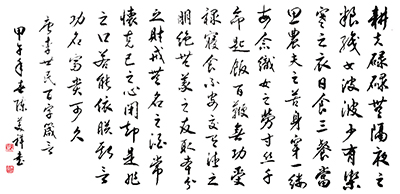 耕夫碌碌無隔夜之
糧織女波波少有禦
寒之衣日食三餐當
思農夫之苦身穿一縷
每念織女之勞寸絲千
命匙飯百鞭無功受
祿寢食不安交有德之
朋絕無益之友取本分
之財戒無名之酒常
懷克己之心閉却是非
之口若能依朕所言
功名富貴可久
唐李世民百字箴言
甲午年春陳美祥書